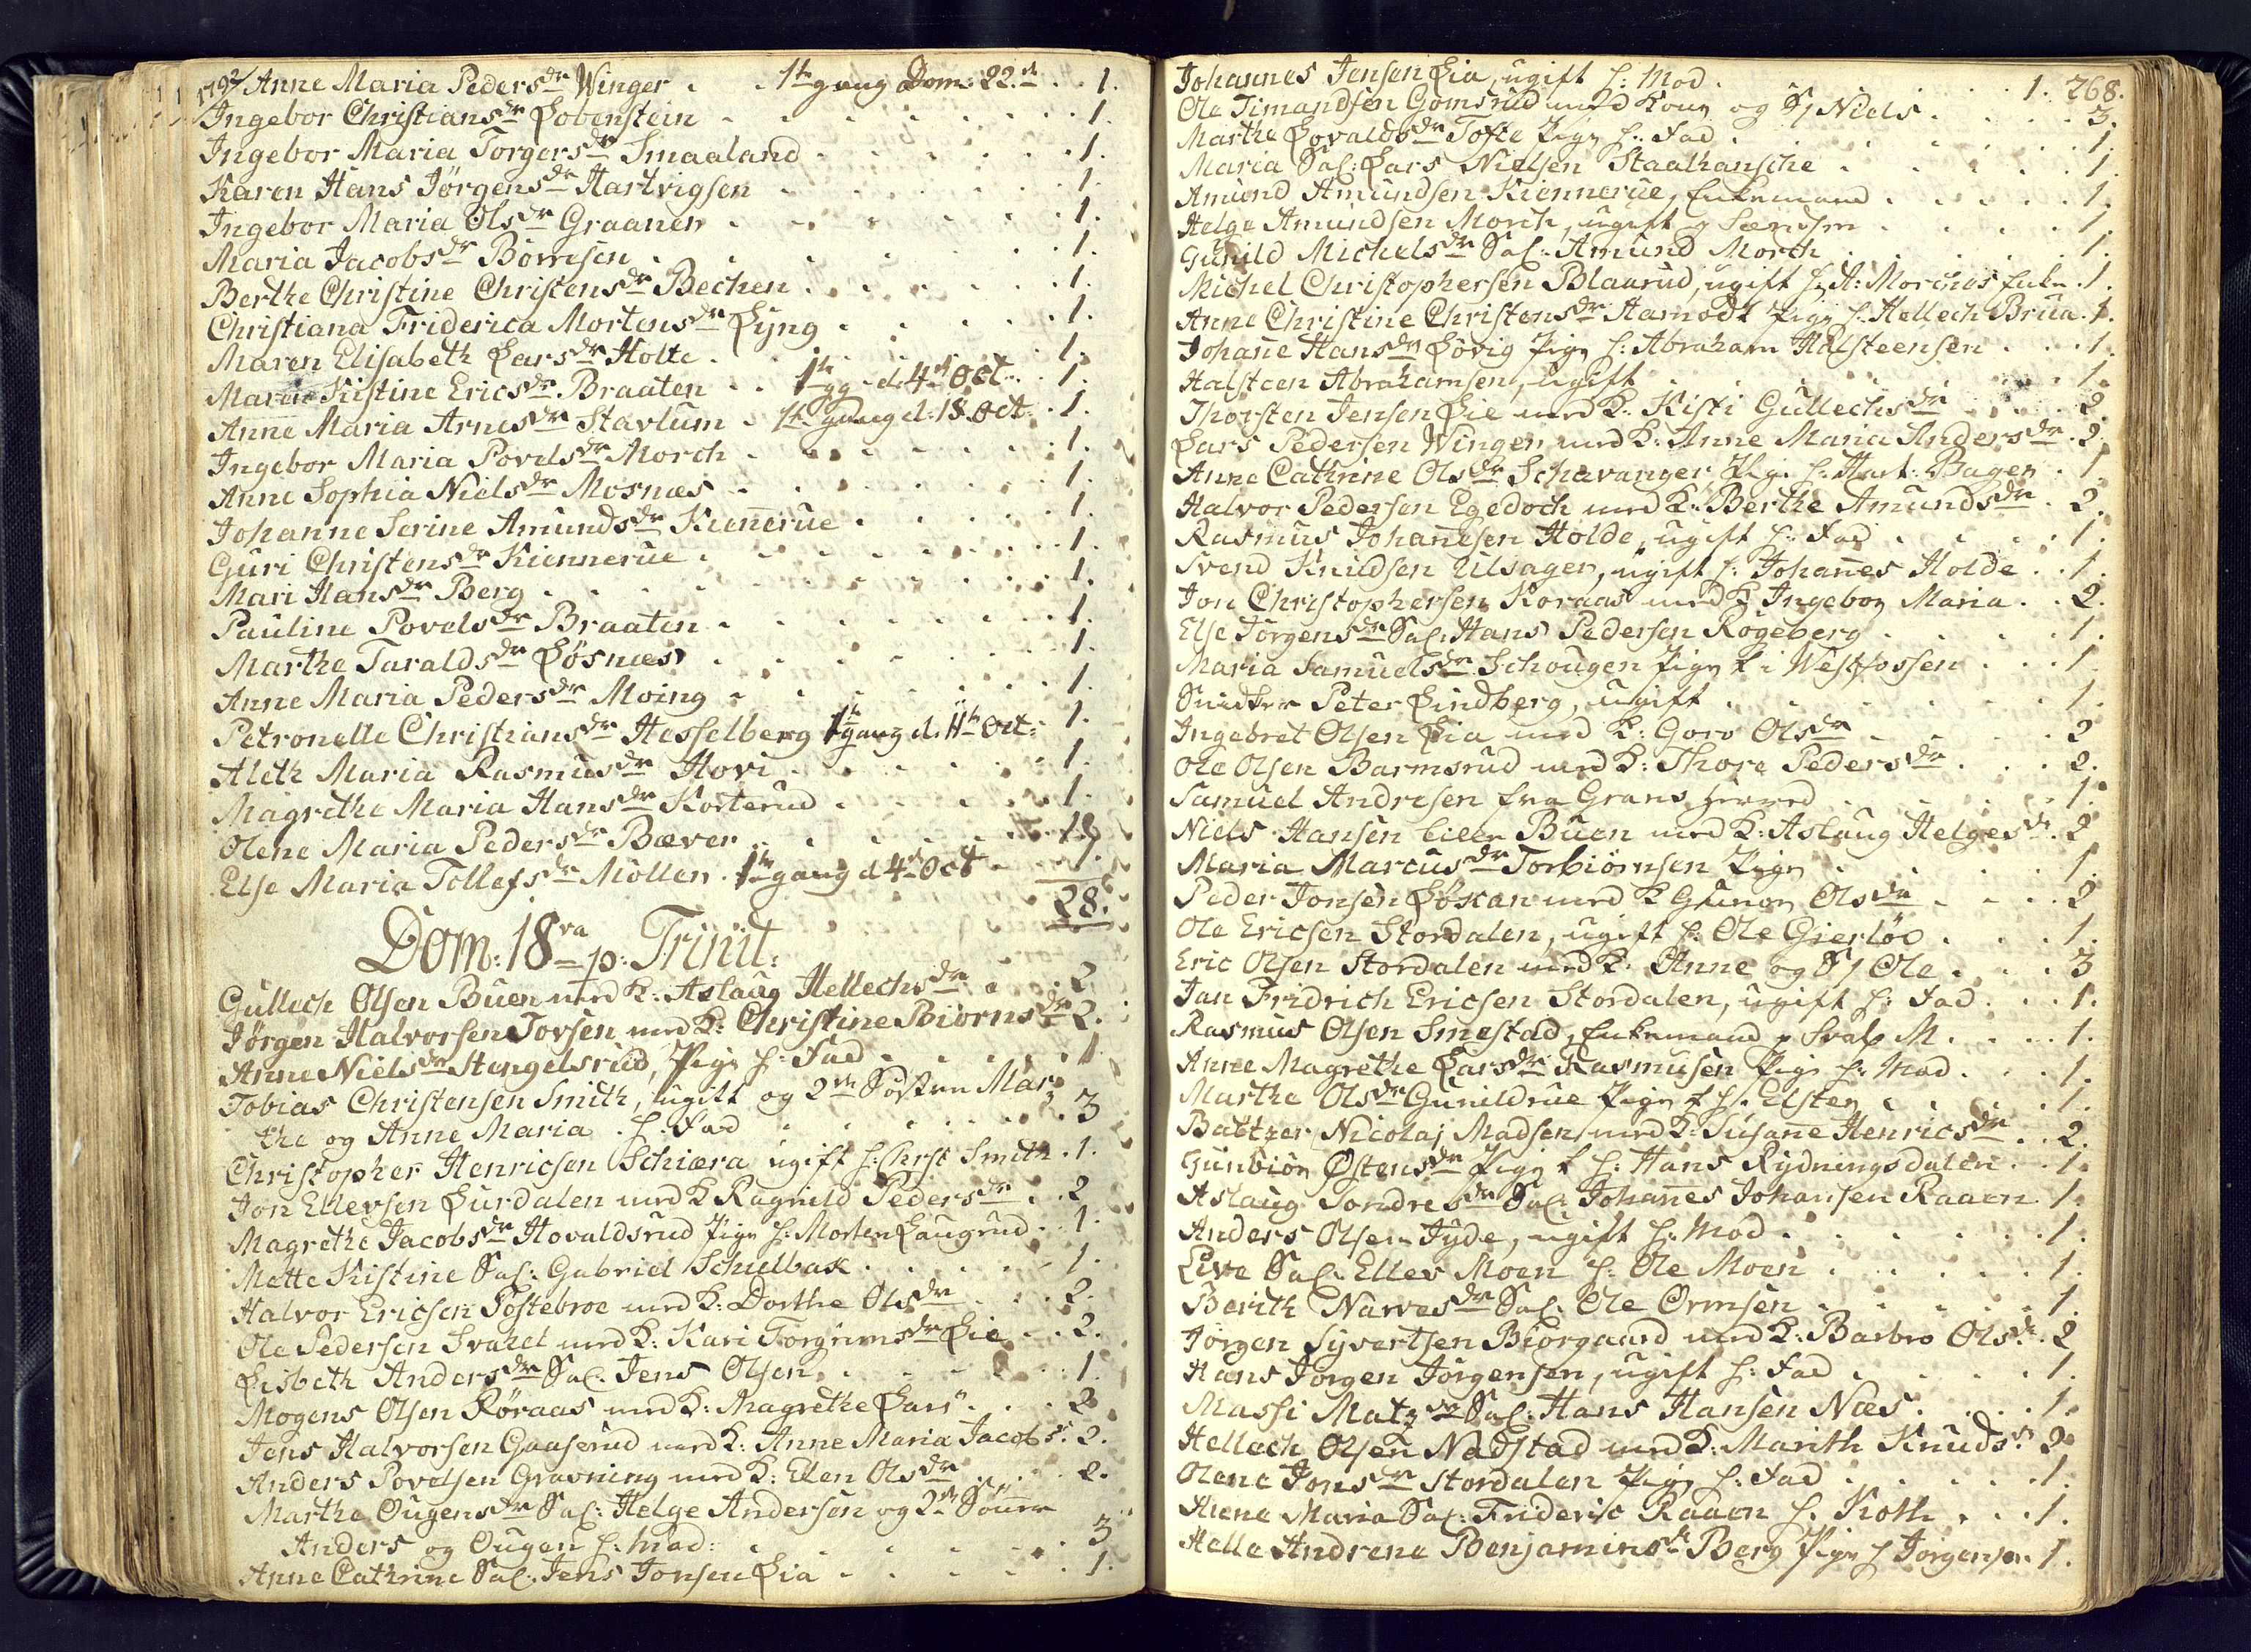 1792/ Anne Maria Pedersdr Winger . . 1te gang Dom: 22. . . 1.
Ingebor Christiansdr Lobenstein . . . 1.
Ingebor Maria Torgersdr Smaaland . . . 1.
Karen Hans Jørgensdr Hartvigsen . . . 1.
Ingebor Maria Olsdr Graanen . . . 1.
Maria Jacobsdr Börresen . . . 1.
Berthe Christine Christensdr Bechen . . . 1.
Christiana Friderica Mortensdr Lyng . . . 1.
Maren Elisabeth Larsdr Holte . . . 1.
Maren Kistine Ericsdr Braaten . . 1te gg d. 4de Oct. . 1.
Anne Maria Arnesdr Stavlum . 1te gang d. 18 Oct . 1.
Ingebor Maria Povelsdr Morch . . . 1.
Anne Sophia Nielsdr Mosnæs . . . 1.
Johanne Serine Amundsdr Kiennerue . . . 1.
Guri Christensdr Kiennerue . . . 1.
Mari Hansdr Berg . . . 1.
Pauline Povelsdr Braaten . . . 1.
Marthe Taraldsdr Løsnæs . . . 1.
Anne Maria Pedersdr Moing . . . 1.
Petronelle Christiansdr Hesselberg 1te gang d. 11te Oct: 1.
Aleth Maria Rasmusdr Hovi . . . 1.
Magrethe Maria Hansdr Korterud . . . 1.
Olene Maria Pedersdr Bæver . . . 1.
Else Maria Tollefsdr Möllen . 1te gang d 4de Oct . 1.
28.
Dom: 18va p: Trinit:
Gullech Olsen Buen med K: Aslaug Hellechsdr . . 2
Jörgen Halvorsen Tovsen med K: Christine Biörnsdr 2.
Anne Nielsdr Stengelsrud, Pige h: Fad . . . 1
Tobias Christensen Smith, ugift og 2de Søstre Mar
the og Anne Maria . h: Fad . . . 3
Christopher Henricsen Schiæra ugift h: Chrst Smith . 1.
Jon Ellevsen Lurdalen med K Ragnild Pedersdr . . 2
Magrethe Jacobsdr Hovaldsrud Pige h: Morten Laugrud . 1.
Mette Kistine Sal: Gabriel Schielbak . . . 1.
Halvor Ericsen Fostebroe med K: Dorthe Olsdr . . 2.
Ole Pedersen Svartel med K: Kari Torgrimsdr Lie . . 2.
Lisbeth Andersdr Sal: Jens Olsen . . . 1.
Mogens Olsen Röraas med K: Magrethe Lars . . . 2
Jens Halvorsen Gaaserud med K: Anne Maria Jacobs: 2.
Anders Povelsen Gravning med K: Elen Olsdr . . . 2.
Marthe Ougensdr Sal: Helge Andersen og 2de Sönner
Anders og Ougen h: Mod: . . . 3
Anne Cathrine Sal: Jens Jonsen Lia . . . 1.
Johannes Jensen Lia, ugift h: Mod . . . 1. 268.
Ole Timandsen Gomsrud med Kone og S/ Niels . . . 3.
Marthe Lovaldsdr Tofte Pige h: Fad . . . 1.
Maria Sal: Lars Nielsen Staalhansche . . . 1.
Amund Amundsen Kiennerue, Enkemand . . . 1.
Helge Amundsen Morch, ugift . . . 1.
Gunild Michelsdr Sal: Amund Morch . . . 1.
Michel Christophersen Blaarud, ugift h: A: Morches Enke . 1.
Anne Christine Christensdr Hamodt Pige h: Hellech Brua . 1.
Johane Hansdr Lövig Pige h: Abraham Halsteensen . . . 1.
Halsteen Abrahamsen, ugift . . . 1.
Thorsten Jensen Lie med K: Kisti Gullechsdr . . 2.
Lars Pedersen Wingen med K: Anne Maria Andersdr . 2.
Anne Cathrine Olsdr Schavanger Pige h: Hart: Bagen . 1.
Halvor Pedersen Egedoch med K: Berthe Amundsdr . 2.
Rasmus Johanesen Holde, ugift h: Fad . . . 1.
Svend Knudsen Ulsager, ugift h: Johanes Holde . . 1.
Jon Christophersen Koraas med K Ingebor Maria . . 2.
Else Jörgensdr Sal: Hans Pedersen Rögeberg . . . 1.
Maria Samuelsdr Schougen Pige i Westfossen . . . 1.
Snidker Peter Lindberg, ugift . . . 1.
Ingebret Olsen Lia med K: Goro Olsdr . . . 2
Ole Olsen Barmsrud med K: Thore Pedersdr . . . 2.
Samuel Andresen fra Grans Herred . . . 1.
Niels Hansen lille Buen med K: Aslaug Helgesdr . 2
Maria Marcusdr Torbiörnsen Pige . . . 1.
Peder Jonsen Løkan med K Gunor Olsdr . . . 2
Ole Ericsen Stordalen, ugift h: Ole Gierløe . . . 1.
Eric Olsen Stordalen med K: Anne og S/ Ole . . . 3
Jan Fridrich Ericsen Stordalen, ugift h: Fad . . . 1.
Rasmus Olsen Smestad, Enkemand . . . 1.
Anne Magrethe Larsdr Rasmusen Pige h: Mod . . . 1.
Marthe Olsdr Gunildrue Pige h. Elsten . . . 1.
Baltzer Nicolaj Madsen med K: Susane Henricsdr . . 2.
Gunbiör Østensdr Pige h: Hans Rydningsdalen . . 1.
Aslaug Sondresdr Sal: Johanes Johansen Raaen 1.
Anders Olsen Fyde, ugift h: Mod . . . 1.
Live Sal: Ellev Moen h: Ole Moen . . . 1.
Berith Narvesdr Sal: Ole Ormsen . . . 1.
Jörgen Syvertsen Biörgaard med K: Barbro Olsdr . 2
Hans Jörgen Jörgensen, ugift h: Fad . . . 1.
Massi Matzdr Sal: Hans Hansen Næs . . . 1.
Hellech Olsen Nadstad med K: Marith Knudsdr 2
Olene Jonsdr Stordalen Pige h: Fad . . . 1.
Anne Maria Sal: Frideric Raaen h. Koth . . . 1.
Helle Andrene Benjaminsdr Berg Pige h Jorgensen 1.